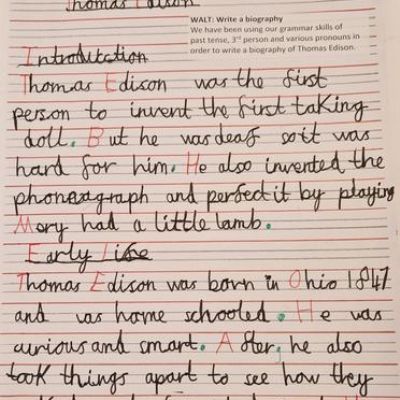 Thomas Edison
WALT: Write a biography
We have been using our grammar skills of
past tense, 3rd person and various pronouns in
order to write a biography of Thomas Edison.
Introduction
Thomas Edison was the first
person to invent the first taking
doll. But he was deaf so it was
hard for him. He also invented the
phonograph and perfect it by playing
Mery had a little lamb.
Early life
Thomas Edison was born in Ohio 1847
and was home schooled. He was
curious and smart. After, he also
took things apart to see how they